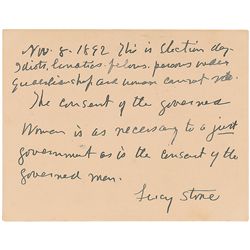 Nov. 8. 1892 This is Election day.
Idiots, lunatics, felons, persons under
guardianship and women cannot vote.
The consent of the governed
Woman is as necessary to a just
government as is the consent of the
governed man.
Lucy Stone